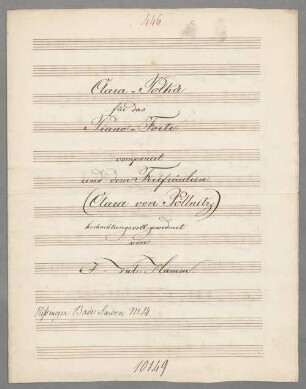 446
Clara-Polka
für das
Piano-Forte
componirt
und dem Freifräulein
(Clara von Pöllnitz)
hochachtungsvoll gewidmet
von
J. Val. Hamm.
Kissinger Bade Saison No 14
10149